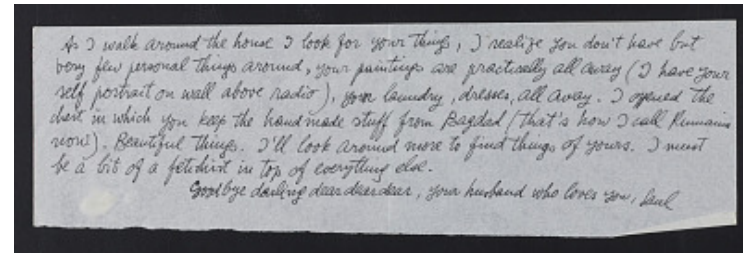 As I walk around the house I look for your things, I realize you don't have but
very few personal things around, your paintings are practically all away (I have your
self portrait on wall above radio), your laundry, dresses, all away. I opened the
chest in which you keep the handmade stuff from Bagdad (that's how I call Rumania
now). Beautiful things. I'll look around more to find things of yours. I must
be a bit of a fetichist in top of everything else.
Goodbye darling dear dear dear, your husband who loves you, Saul